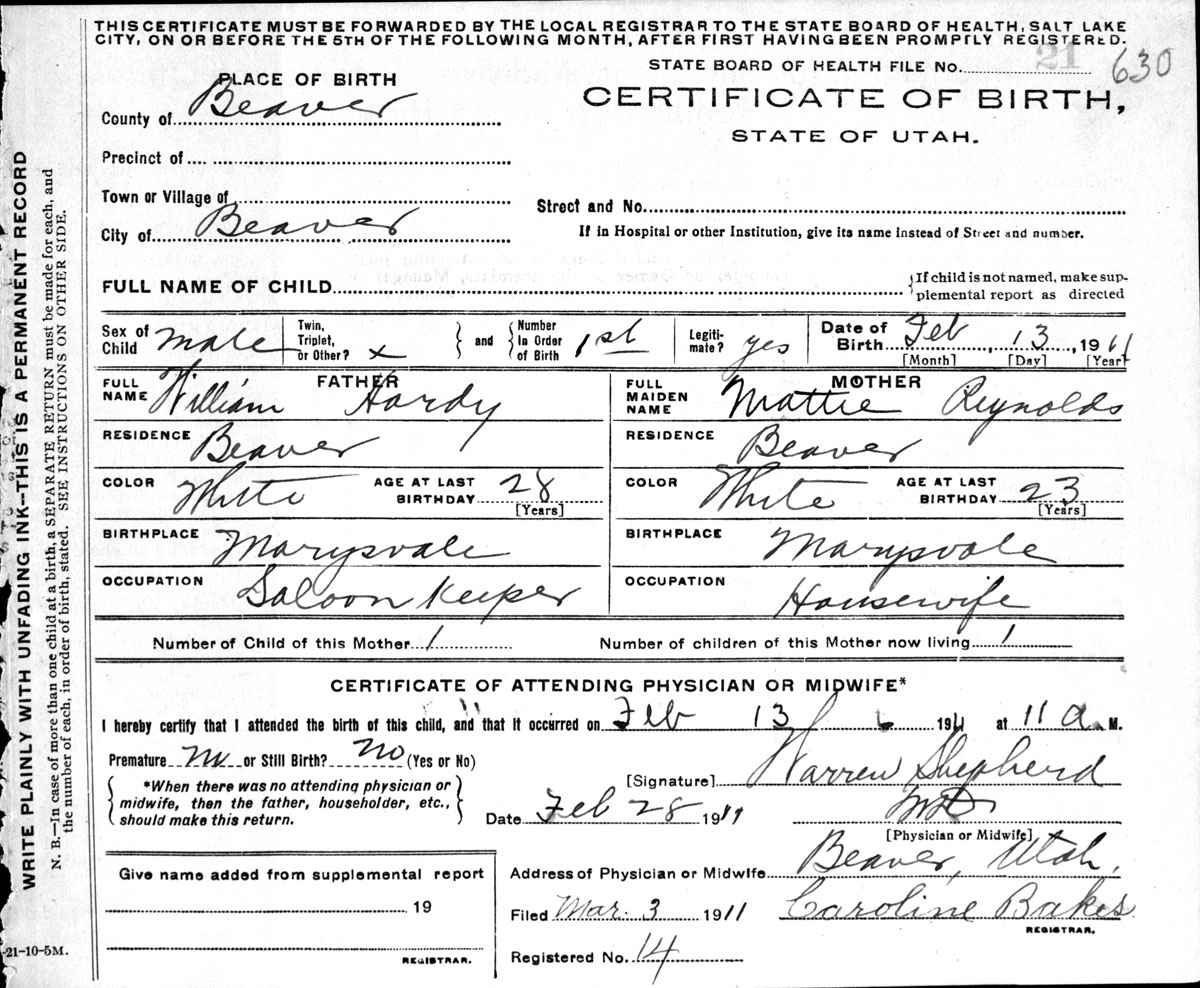 THIS CERTIFICATE MUST BE FORWARDED BY THE LOCAL REGISTRAR TO THE STATE BOARD OF HEALTH, SALT LAKE
CITY, ON OR BEFORE THE 5TH OF THE FOLLOWING MONTH, AFTER FIRST HAVING BEEN PROMPTLY REGISTERED.
STATE BOARD OF HEALTH FILE NO. 21 630
PLACE OF BIRTH
CERTIFICATE OF BIRTH,
STATE OF UTAH.
County of Beaver
Precinct of
Town or Village of
Street and No.
City of Beaver
If in Hospital or other Institution, give its name instead of Street and number.
FULL NAME OF CHILD
{If child is not named, make sup-
plemental report as directed
Sex of Child Male
Twin, Triplet, or Other? x
and
Number In Order of Birth 1st
Legiti-mate? yes
Date of Birth Feb, 13, 1911
[Month] [Day] [Year]
FATHER
FULL NAME William Hardy
RESIDENCE Beaver
COLOR White AGE AT LAST BIRTHDAY 28
[Years]
BIRTHPLACE Marysvale
OCCUPATION Saloon Keeper
MOTHER
FULL MAIDEN NAME Mattie Reynolds
RESIDENCE Beaver
COLOR White AGE AT LAST BIRTHDAY 23
[Years]
BIRTHPLACE Marysvale
OCCUPATION Housewife
Number of Child of this Mother 1 Number of children of this Mother now living 1
CERTIFICATE OF ATTENDING PHYSICIAN OR MIDWIFE*
I hereby certify that I attended the birth of this child, and that it occurred on Feb 13 1911 at 11 a. M.
Premature No or Still Birth? No (Yes or No)
[Signature] Warren Shepherd
*When there was no attending physician or
midwife, then the father, householder, etc.,
should make this return.
Date Feb 28 1911
MD
[Physician or Midwife]
Address of Physician or Midwife Beaver, Utah.
Give name added from supplemental report
19
REGISTRAR.
Filed Mar. 3 1911 Caroline Bakes
REGISTRAR.
Registered No. 14
-21-10-5M.
WRITE PLAINLY WITH UNFADING INK--THIS IS A PERMANENT RECORD
N. B.—In case of more than one child at a birth, a SEPARATE RETURN must be made for each, and
the number of each, in order of birth, stated. SEE INSTRUCTIONS ON OTHER SIDE.